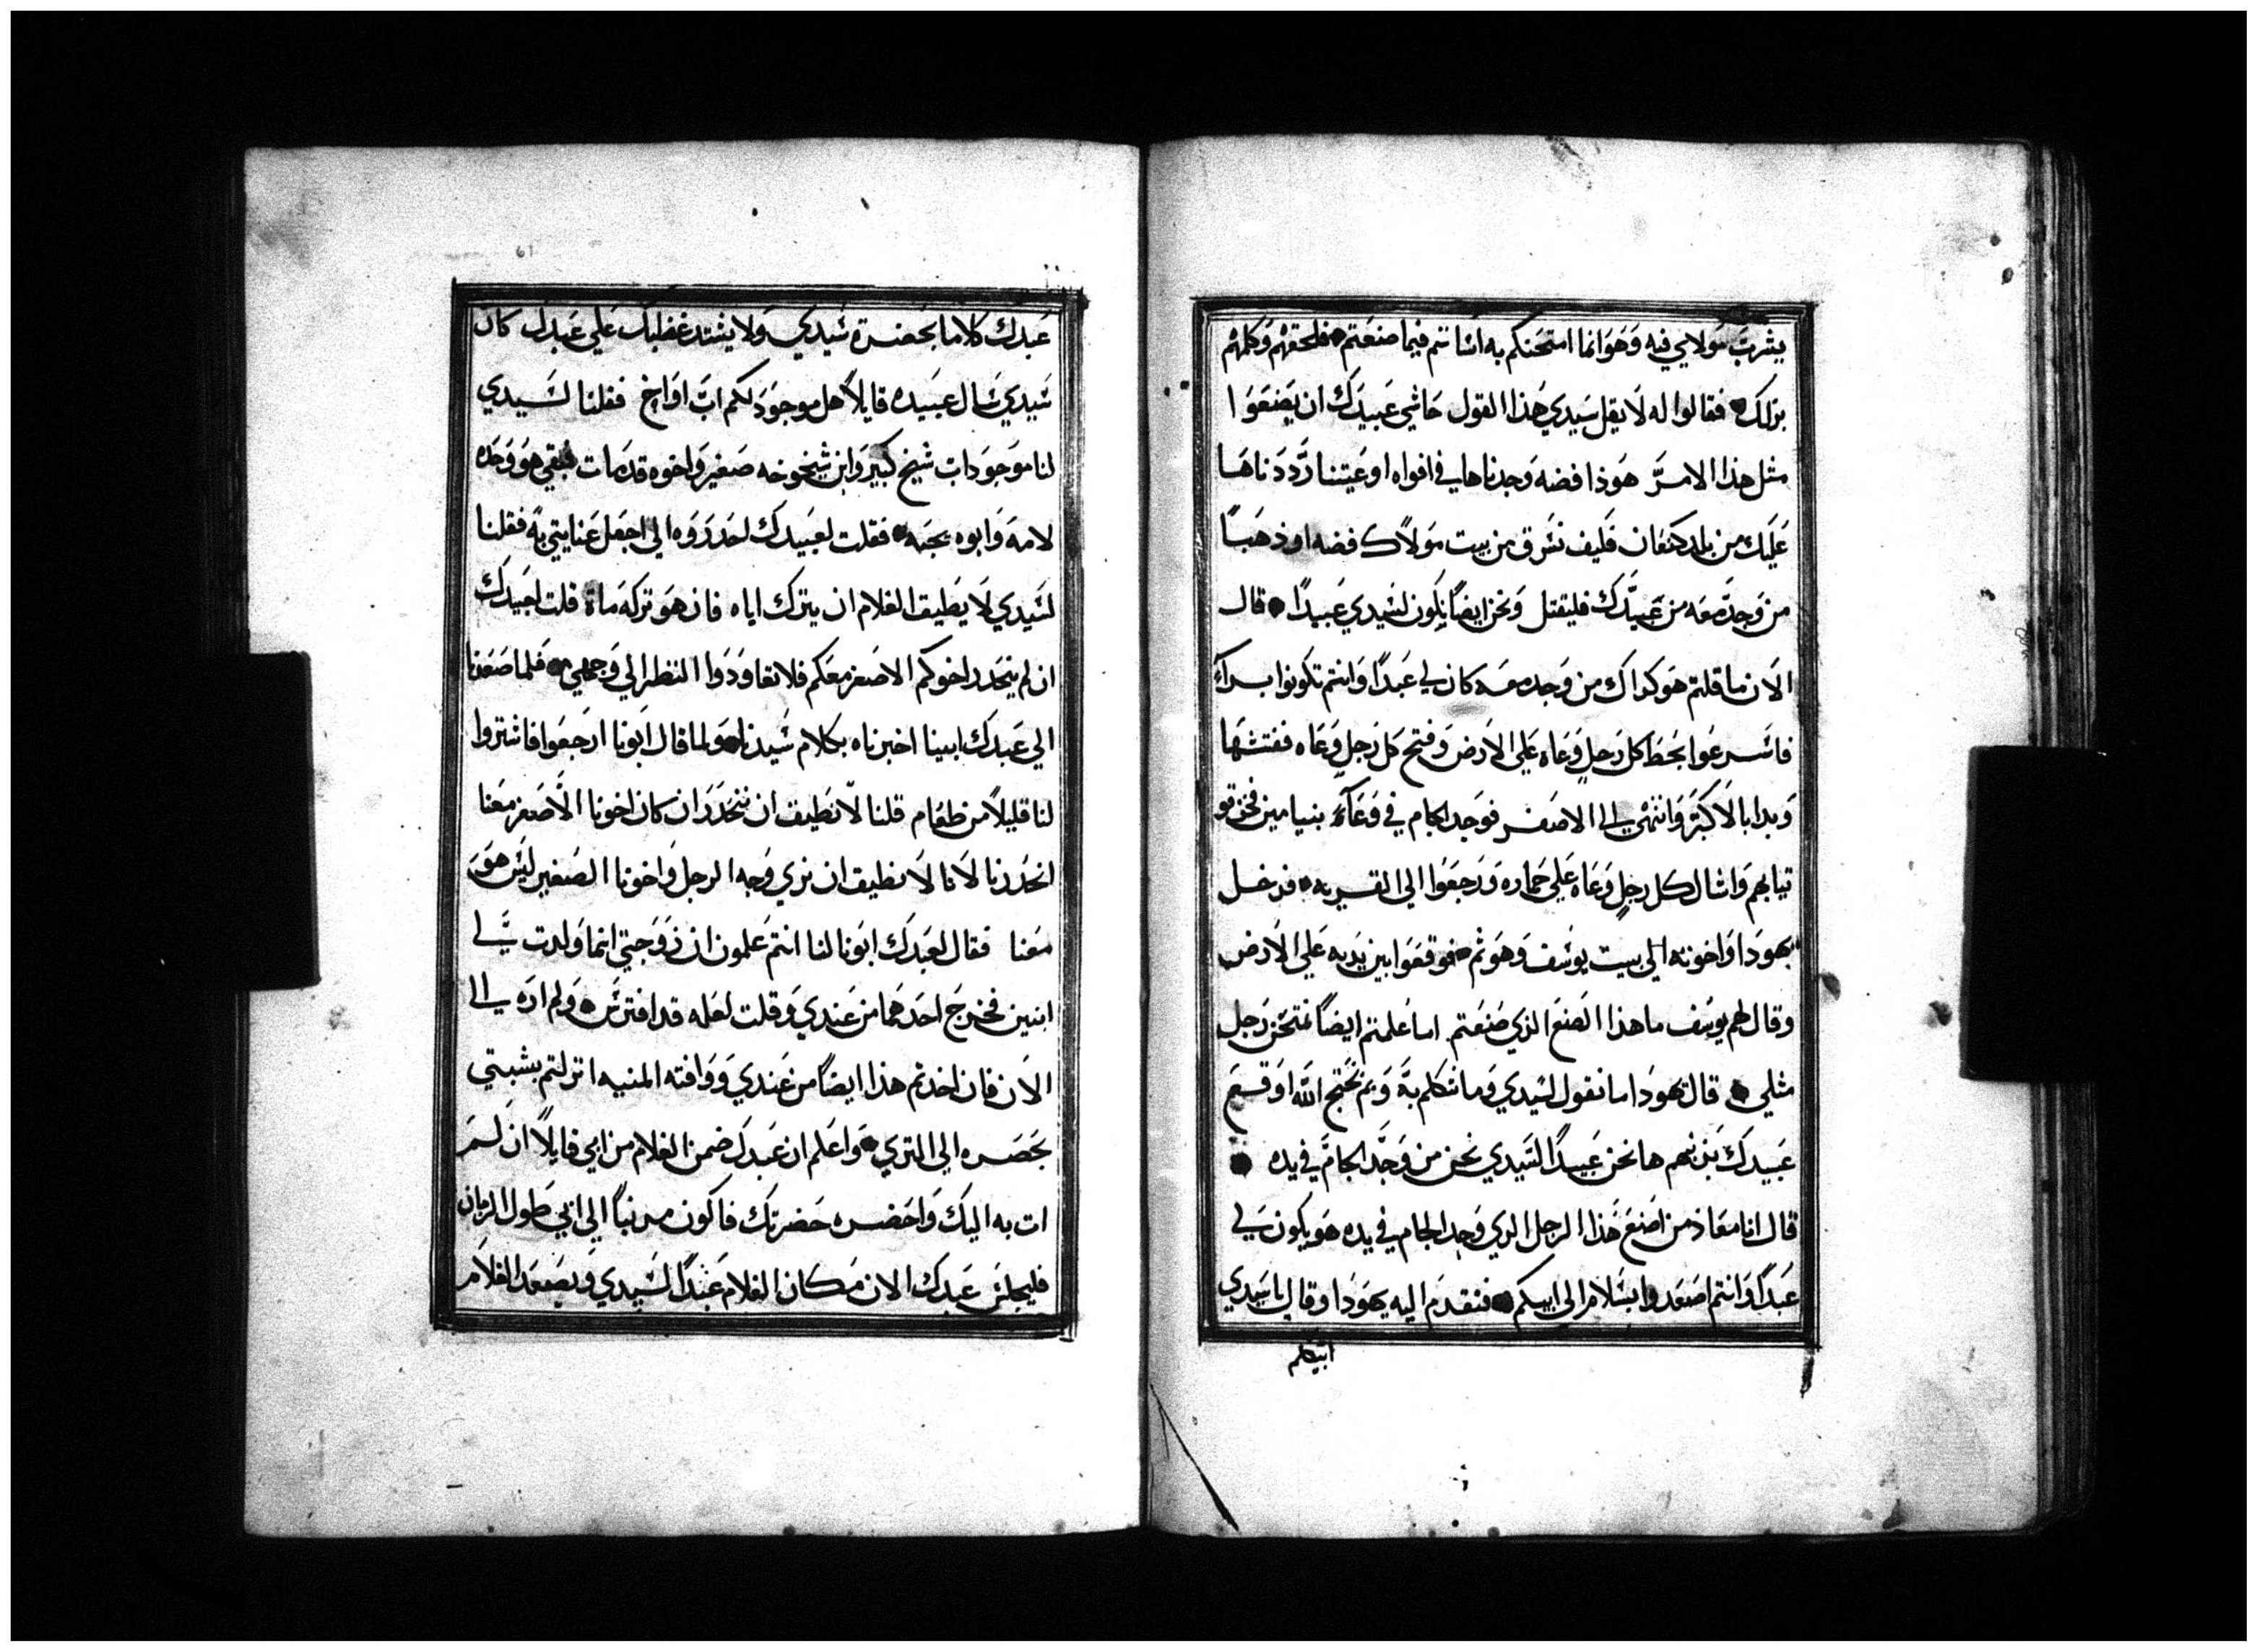 يشرب مولاي فيه وهو انما امتحنكم به اساتم فيما صنعتم فلحقهم وكلمهم
بزلك فقالوا له لا يقل سيدي هذا القول حاشي عبيدك ان يصنعوا
مثل هذا الامر هوذا فضه وجدناها في افواه اوعيتنا رددناها
عليك من بلد كنعان فكيف نسرق من بيت مولاك فضه او ذهبًا
من وجد معه من عبيدك فليقتل ونحن ايضًا نكون لسيدي عبيدًا قال
الان ما قلتم هو كداك من وجد معه كان لي عبدًا وانتم تكونوا براء
فاسرعوا بحط كل رجل وعاه علي الارض وفتح كل رجل وعاه ففتشها
وبدا بالاكبر وانتهي الي الاصغر فوجد الجام في وعاء بنيامين فخرقو
تيابهم واشال كل رجل وعاه علي حماره ورجعوا الي القريه فدخل
يهودا واخوته الي بيت يوسف وهو ثم فوقعوا بين يديه علي الارض
وقال لهم يوسف ما هذا الصنع الذي صنعتم اما علمتم ايضًا نمتحن رجل
مثلي قال يهودا ما نقول لسيدي وما نتكلم به وبم نحتج الله اوقع
عبيدك بذنبهم ها نحن عبيدًا لسيدي نحن من وجد الجام في يده
قال انا معاذ من اصنع هذا الرجل الدي وجد الجام في يده هو يكون لي
عبدًا وانتم اصعدوا بسلام الي ابيكم فتقدم اليه يهودا وقال يا سيدي
ايتكلم
61
عبدك كلاما بحضرة سيدي ولا يشتد غضبك علي عبدك كان
سيدي سال عبيده قايلاً هل موجود لكم اب او اخ فقلنا لسيدي
لنا موجود اب شيخ كبير وابن شيخوخه صغير واخوه قد مات فبقي هو وحده
لامه وابوه يحبه فقلت لعبيدك احدروه الي اجعل عنايتي به فقلنا
لسيدي لا يطيق الغلام ان يترك اباه فان هو تركه مات قلت لعبيدك
ان لم ينحدر اخوكم الاصغر معكم فلا تعاودوا النظر الي وجهي فلما صعدنا
الي عبدك ابينا اخبرناه بكلام سيدنا ولما قال ابونا ارجعوا فاشتروا
لنا قليلاً من طعام قلنا لا نطيق ان ننحدر ان كان اخونا الاصغر معنا
انحدرنا لانا لا نطيق ان نري وجه الرجل واخونا الصغير ليس هو
معنا فقال لعبدك ابونا لنا انتم علمون ان زوجتي انما ولدت لي
ابنين فخرج احدهما من عندي وقلت لعله قد افترس ولم اره الي
الان فان اخدتم هذا ايضًا من عندي ووافته المنيه انزلتم بشيبتي
بحصره الي التري واعلم ان عبدك ضمن الغلام من ابي قايلاً ان لم
ات به اليك واحضره حضرتك فاكون مدنبًا الي ابي طول الزمان
فليجلس عبدك الان مكان الغلام عبدًا لسيدي ويصعد الغلام